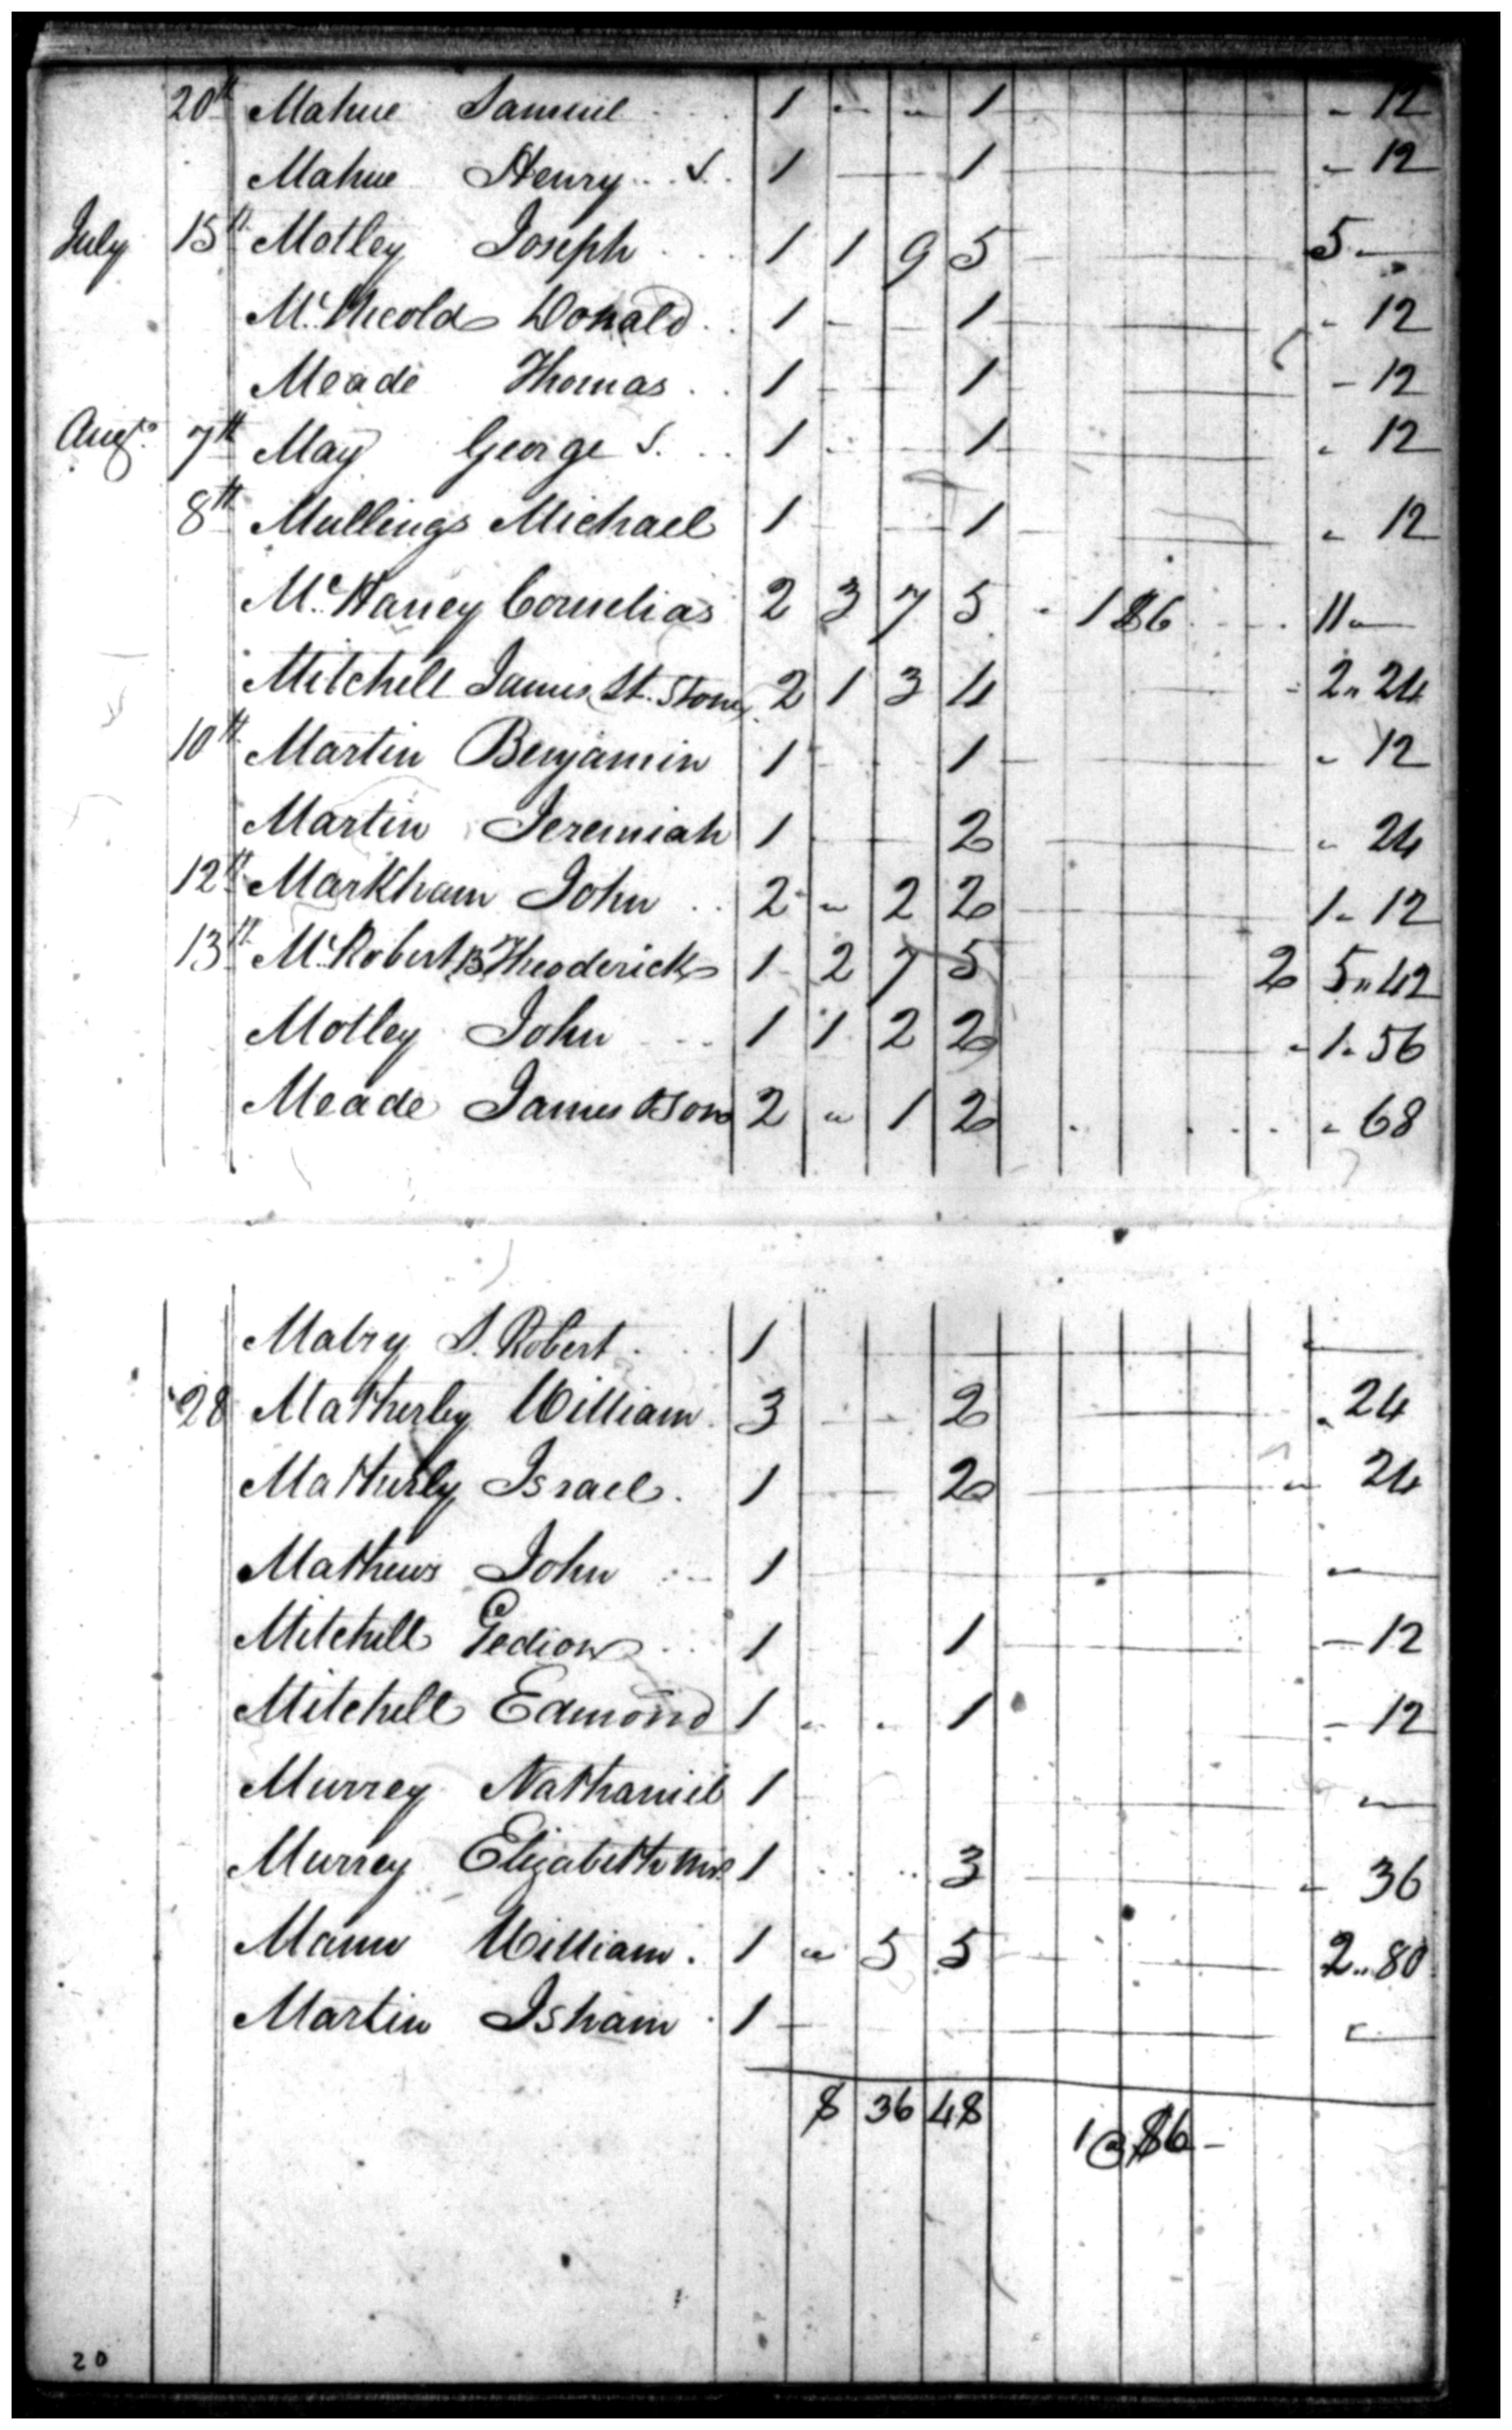 20th Mahue Samuel 1 " " 1 " 12
Mahue Henry S. 1 1 " 12
July 15th Motley Joseph 1 1 9 5 5 "
Mc. Donald 1 1 " 12
Meade Thomas 1 1 " 12
Augt. 7th May George S. 1 1 " 12
8th Mullings Michael 1 1 " 12
Mc. Haney Cornelias 2 3 7 5 1 $86 11 "
Mitchell James St. Stone 2 1 3 4 2 " 24
10th Martin Benjamin 1 1 " 12
Martin Jeremiah 1 2 " 24
12th Markham John 2 " 2 2 1 " 12
13th Mc. Robert B Theoderick 1 2 7 5 2 5 " 42
Motley John 1 1 2 2 1 " 56
Meade James 2 " 1 2 " 68
Mabry S. Robert 1 "
28 Matherley William 3 2 " 24
Matherly Israel 1 2 " 24
Mathews John 1 "
Mitchell Gedion 1 1 " 12
Mitchell Edmond 1 " " 1 " 12
Murrey Nathaniel 1 "
Murrey Elizabeth Mrs. 1 3 " 36
Mann William 1 " 5 5 2 " 80
Martin Isham 1 "
8 36 48 1 @ $86 -
20